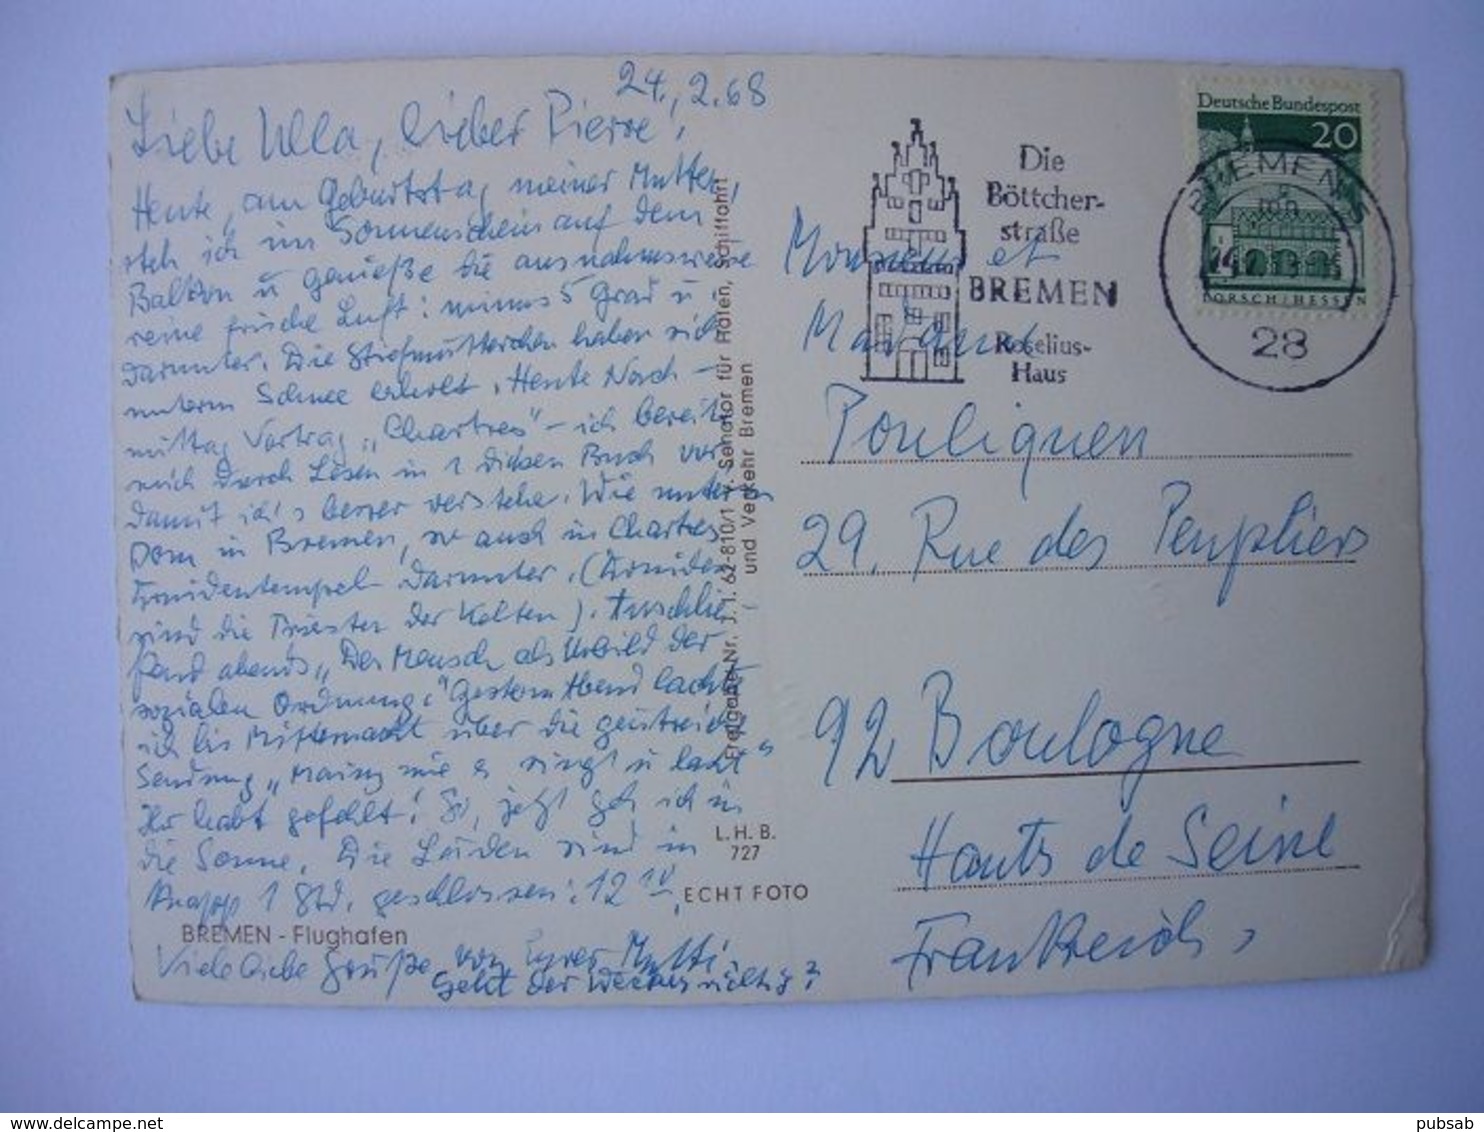 24.,2.68
Liebe Ulla, lieber Pierre,
Heute, am Geburtstag meiner Mutter,
steh ich im Sonnenschein auf dem
Balkon u genieße die ausnahmsweise
reine frische Luft: minus 5 Grad u.
darunter. Die Stiefmütterchen haben sich
unterm Schnee erholt. Heute Nach-
mittag Vortrag „Chartres" – ich bereite
mich durch Lesen in 1 dicken Buch vor
damit ich's besser verstehe. Wie unterm
Dom in Bremen, so auch in Chartres
Druidentempel darunter. (Druiden
sind die Priester der Kelten). Anschlie-
ßend abends „Der Mensch als Urbild der
sozialen Ordnung." Gestern Abend lachte
ich bis Mitternacht über die geistreiche
Sendung „Mainz wie es singt u lacht"
Ihr habt gefehlt! So, jetzt geh ich in
die Sonne. Die Läden sind in
knapp 1 Std. geschlossen: 12 10.
BREMEN - Flughafen
Viele liebe Grüße von Eurer Mutti.
Geht der Wecker richtig?
Freigabe-Nr. J. 1. 62-810/1 d. Senator für Häfen, Schiffahrt
und Verkehr Bremen
L. H. B.
727
ECHT FOTO
Die
Böttcher-
straße
BREMEN
Roselius-
Haus
Deutsche Bundespost
20
LORSCH / HESSEN
BREMEN 5
28
Monsieur et
Madame
Pouliquen
29, Rue des Peupliers
92 Boulogne
Hauts de Seine
Frankreich
pubsab
delcampe.net